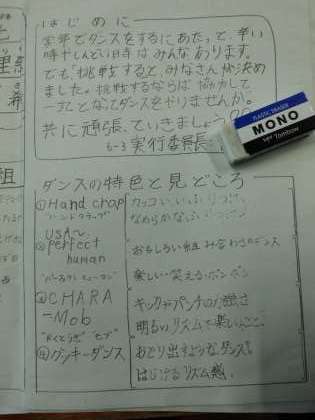 はじめに
学年でダンスをするにあたって、辛い
時やしんどい時はみんなあります。
でも「挑戦すると、みなさんが決め
ました。挑戦するならば 協力して
一丸となってダンスをやりませんか。
共に頑張っていきましょう
6-3 実行委員長
PLASTIC ERASER
MONO
Tombow
組
ダンスの特色と見どころ
①Hand Chap
ハンドクラップ
カッコいい
なめらかな
USA〜
②perfect
human
"パーフェクトヒューマン"
おもしろい組み合わさのダンス
楽しい・笑える・ポンポン
③CHARA
-Mob
"きゃらくた モブ"
キックやパンチの力強さ
明るいリズムで楽しいとこ。
④グッキーダンス
おどり出すようなダンス!
はじけるリズム感。